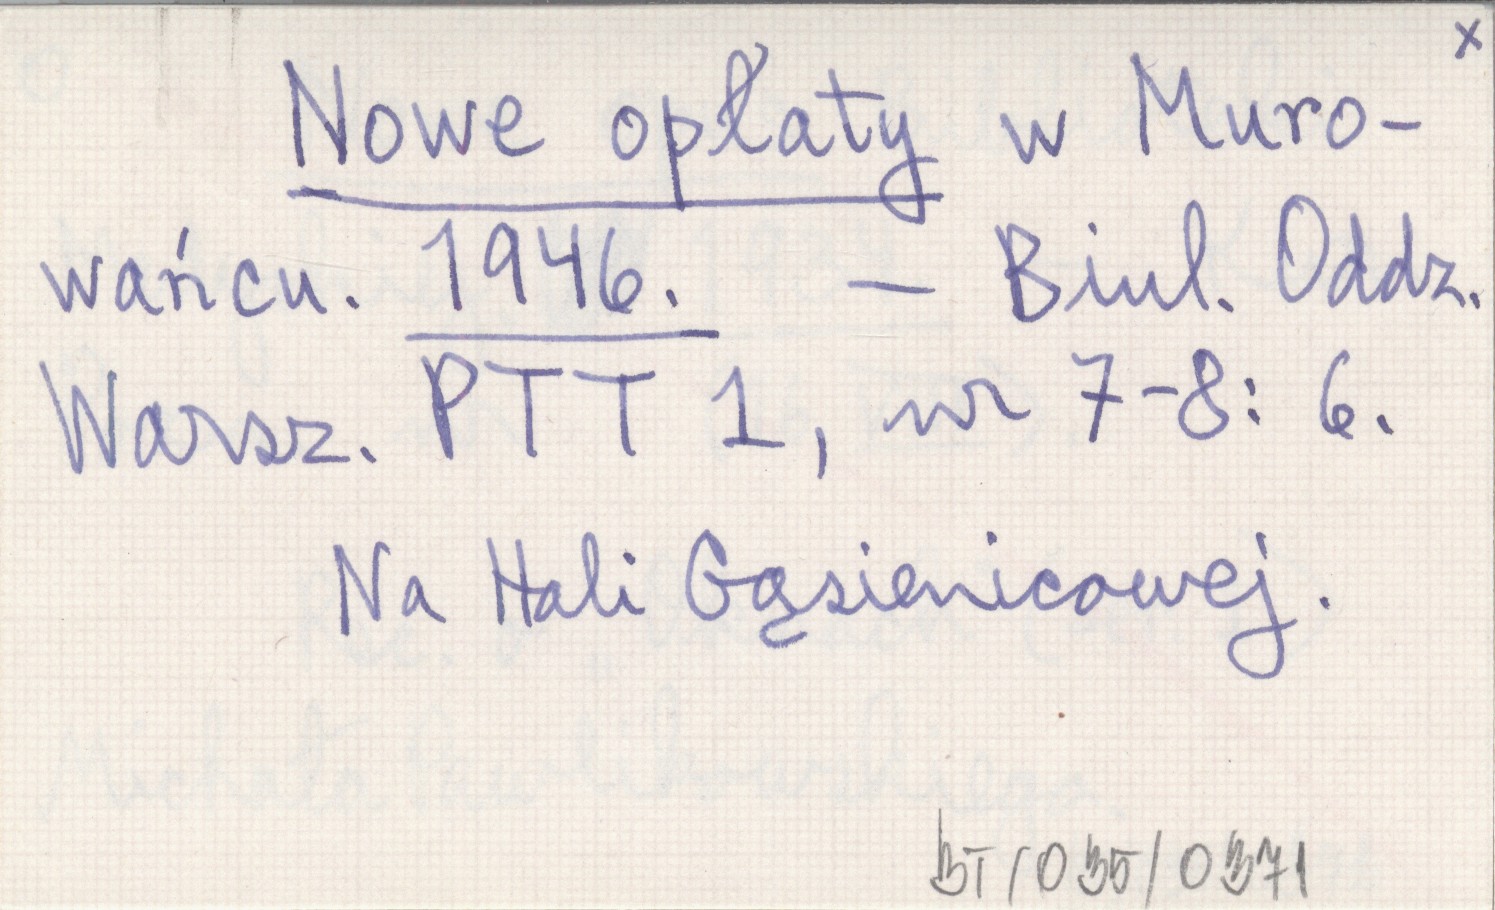 x
Nowe opłaty w Muro-
wańcu. 1946. — Biul. Oddz.
Warsz. PTT 1, nr 7-8: 6.
Na Hali Gąsienicowej.
BT/035/0371